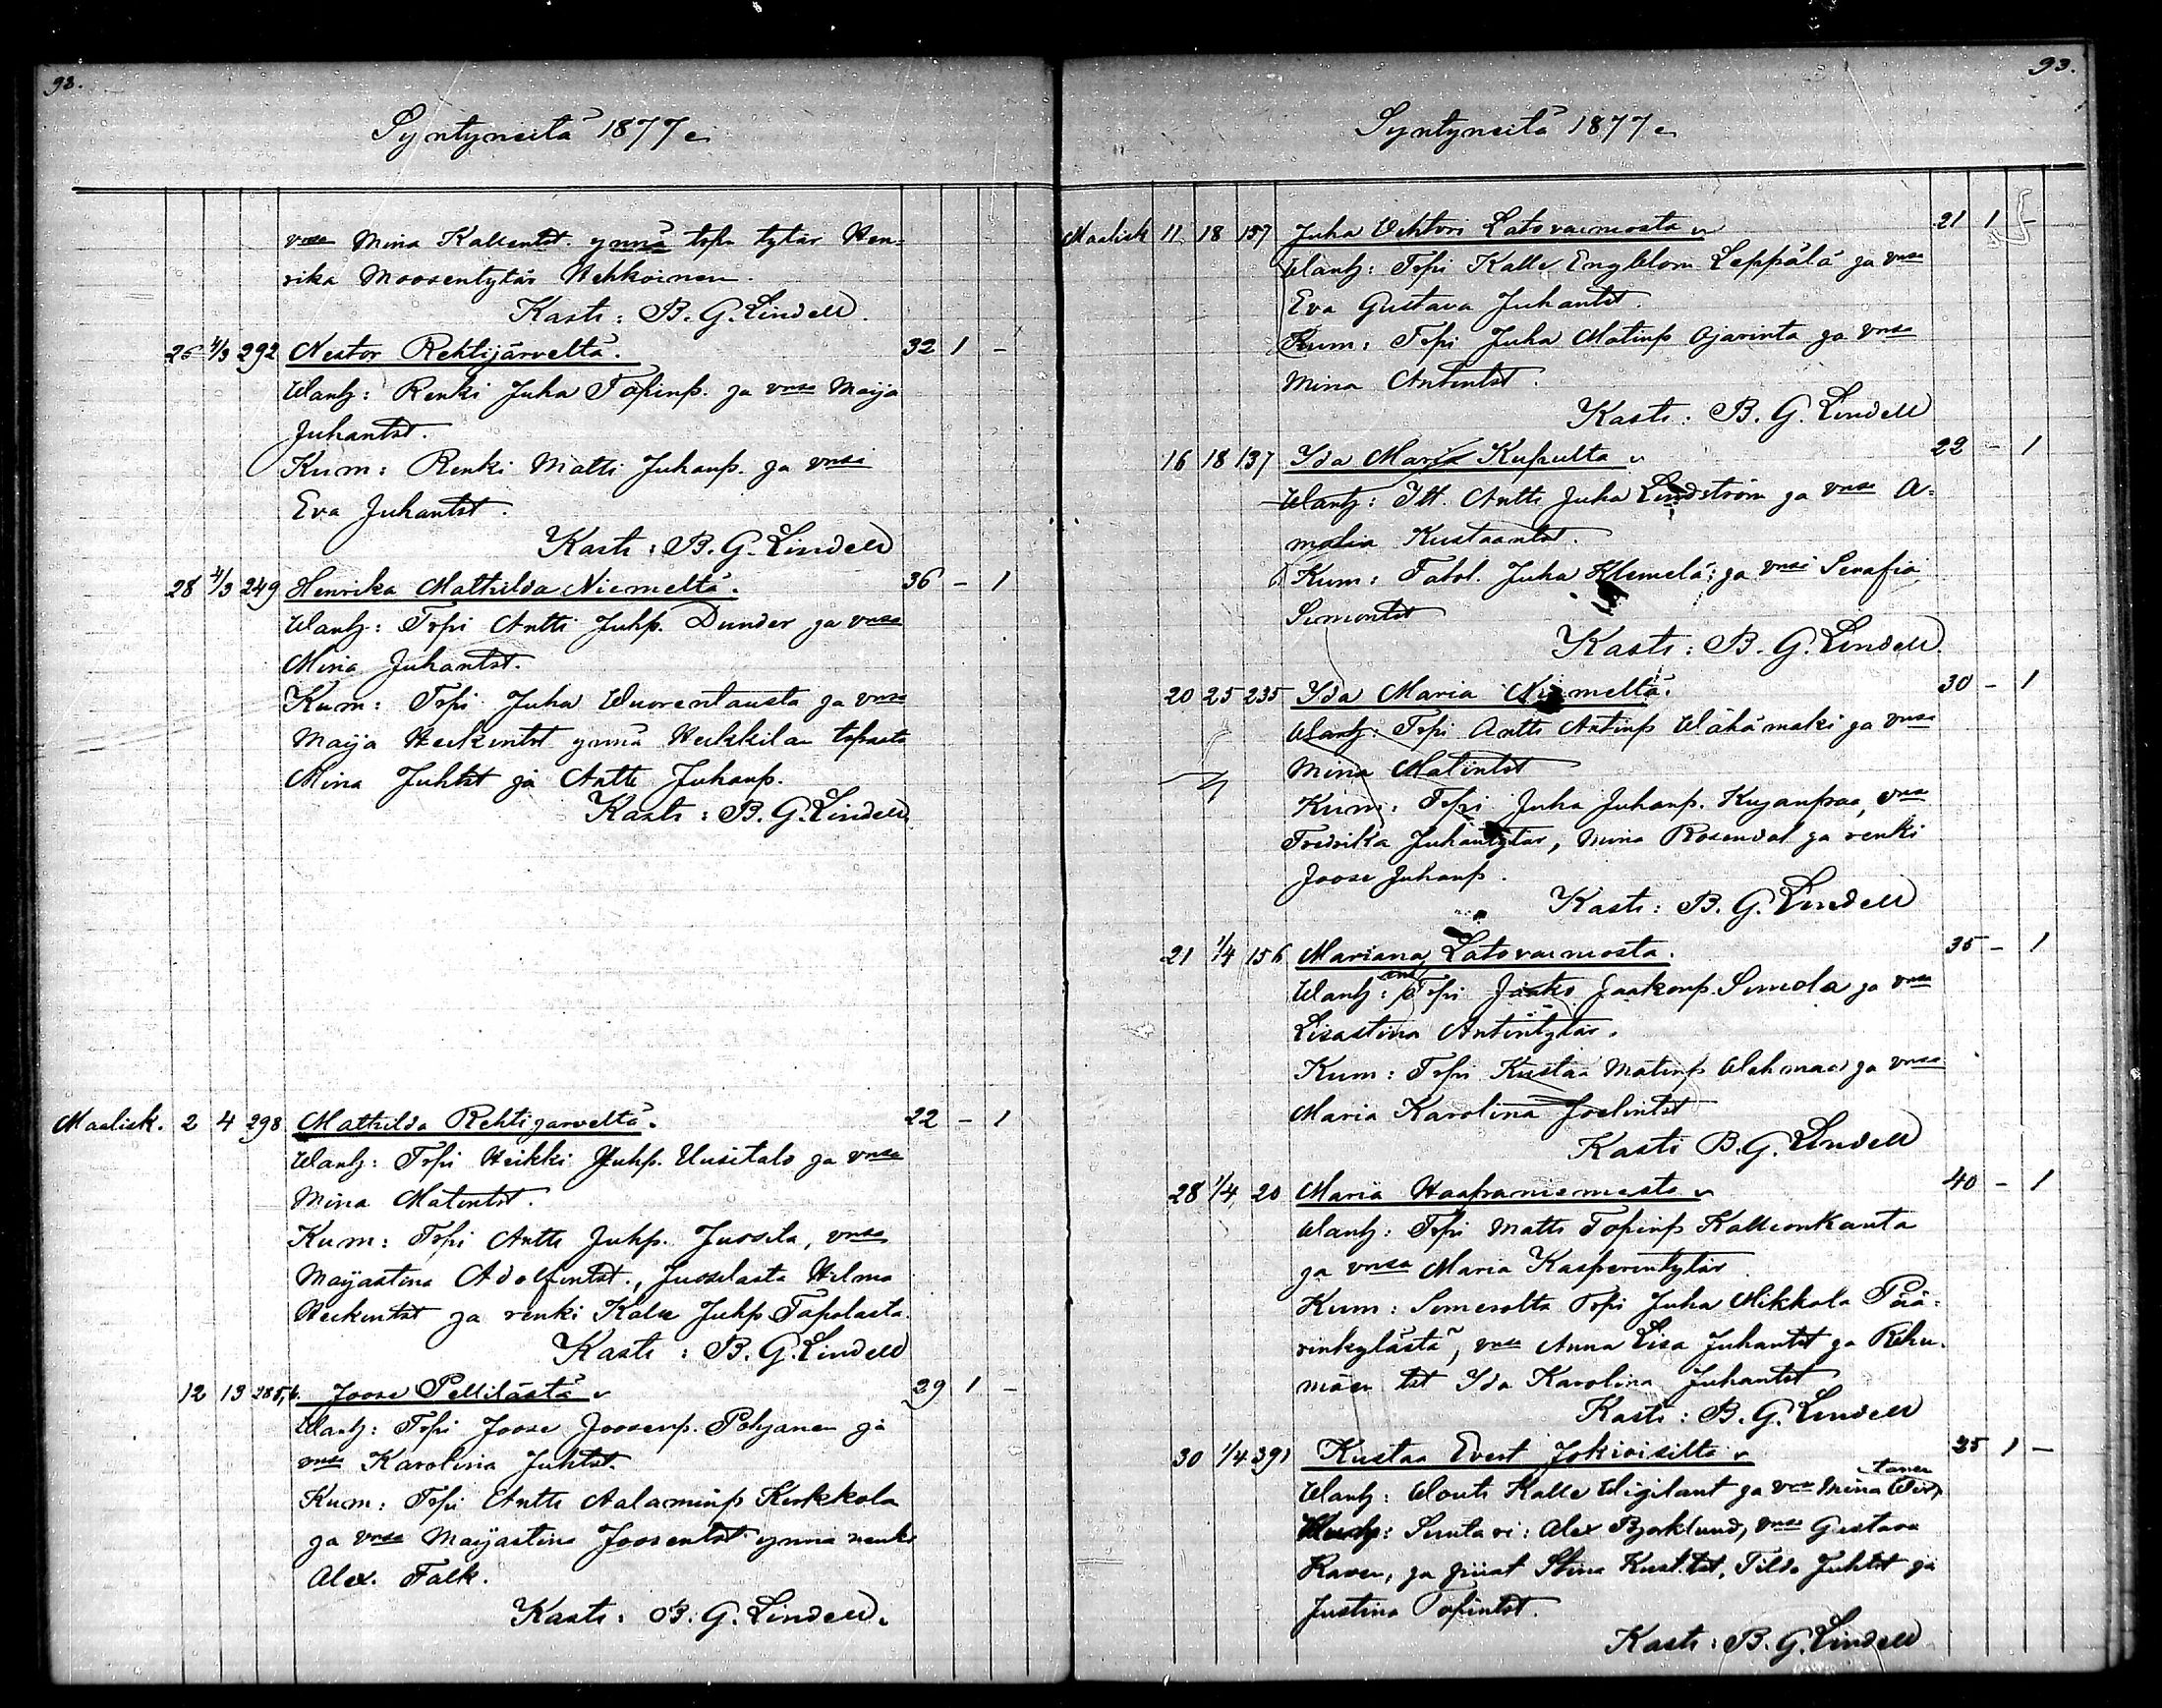 93.
Syntyneitä 1877
vmsa Mina Kallentst. ynnä tpln tytär Hen=
rika Moosentytär Hehkoinen.
Kasti: B. G. Lindell.
26 4/3 292 Nestor Rehtijärveltä. 32 1 -
Wanh: Renki Juha Topinp. ja vmsa Maija
Juhantst.
Kum: Renki Matti Juhanp. ja vmsi
Eva Juhantst.
Kasti: B. G. Lindell
28 4/3 249 Henrika Mathilda Niemeltä. 36 - 1
Wanh: Trpi Antti Juhp. Dunder ja vmsa
Mina Juhantst.
Kum: Trpi Juha Wuorentausta ja vmsa
Maija Heikintst ynnä Heikkilän
Mina Juhtst ja Antti Juhanp.
Kasti: B. G. Lindell.
Maalisk. 2 4 298 Mathilda Rehtijärveltä. 22 - 1
Wanh: Trpi Heikki Juhp. Uusitalo ja vmsa
Mina Matintst.
Kum: Trpi Antti Juhp. Jussila, vmsa
Maijastina Adolfintst., Jussilasta Wilma
Heikintst ja renki Kalle Juhp Tapolasta.
Kasti: B. G. Lindell
12 13 285, Joose Pellilästä 29 1 -
Wanh: Trpi Joose Joosenp. Pohjanen ja
vmsa Karolina Juhtst.
Kum: Trpi Antti Aalaminp Kerkkola
ja vmsa Maijastina Joosentst ynnä renki
Alex. Falk.
Kasti: B. G. Lindell.
93.
Syntyneitä 1877
Maalisk 11 18 157 Juha Vihtori Latovainiosta 21 1 -
Wanh: Trpi Kalle Engblom Leppälä ja vmsa
Eva Gustava Juhantst
Kum: Trpi Juha Matinp Ojarinta ja vmsa
Mina Antintst.
Kasti: B. G. Lindell
16 18 137 Ida Maria Kuhulta 22 - 1
Wanh: Itt. Antti Juha Lindström ja vmsa A=
malia Kustaantst.
Kum: Tatol. Juha Klemelä ja vmsi Serafia
Simontst
Kasti: B. G. Lindell.
20 25 235 Ida Maria Niemeltä. 30 - 1
Wanh: Trpi Antti Antinp Wähämäki ja vmsa
Mina Matintst
Kum: Trpi Juha Juhanp. Kujanpää, vmsa
Fredrika Juhantytär, Mina Rosendal ja renki
Joose Juhanp.
Kasti: B. G. Lindell
21 1/4 156 Mariana Latovainiosta. 35 - 1
Wanh: Trpi Jaako Jaakonp. Simola ja vmsa
Lisastina Antintytär.
Kum: Trpi Kustaa Matinp Wehmaa ja vmsa
Maria Karolina Joelintst
Kasti B. G. Lindell
28 1/4 20 Maria Haapaniemestä 40 - 1
Wanh: Trpi Matti Topinp Kallionkanta
ja vmsa Maria Kasperintytär
Kum: Somerolta Trpi Juha Mikkola Pää=
rinkylästä, vmsa Anna Lisa Juhantst ja Rihu=
mäen tst Ida Karolina Juhantst
Kasti: B. G. Lindell
30 1/4 391 Kustaa Evert Jokioisilta 35 1 -
Wanh: Wouti Kalle Wigilant ja vmsa Mina Wir,
tanen
Suutari: Alex Bjorklund, vmsa Gustava
Raven, ja piiat Stina Kust.tst, Tilda Juhtst ja
Justina Topintst.
Kasti: B. G. Lindell